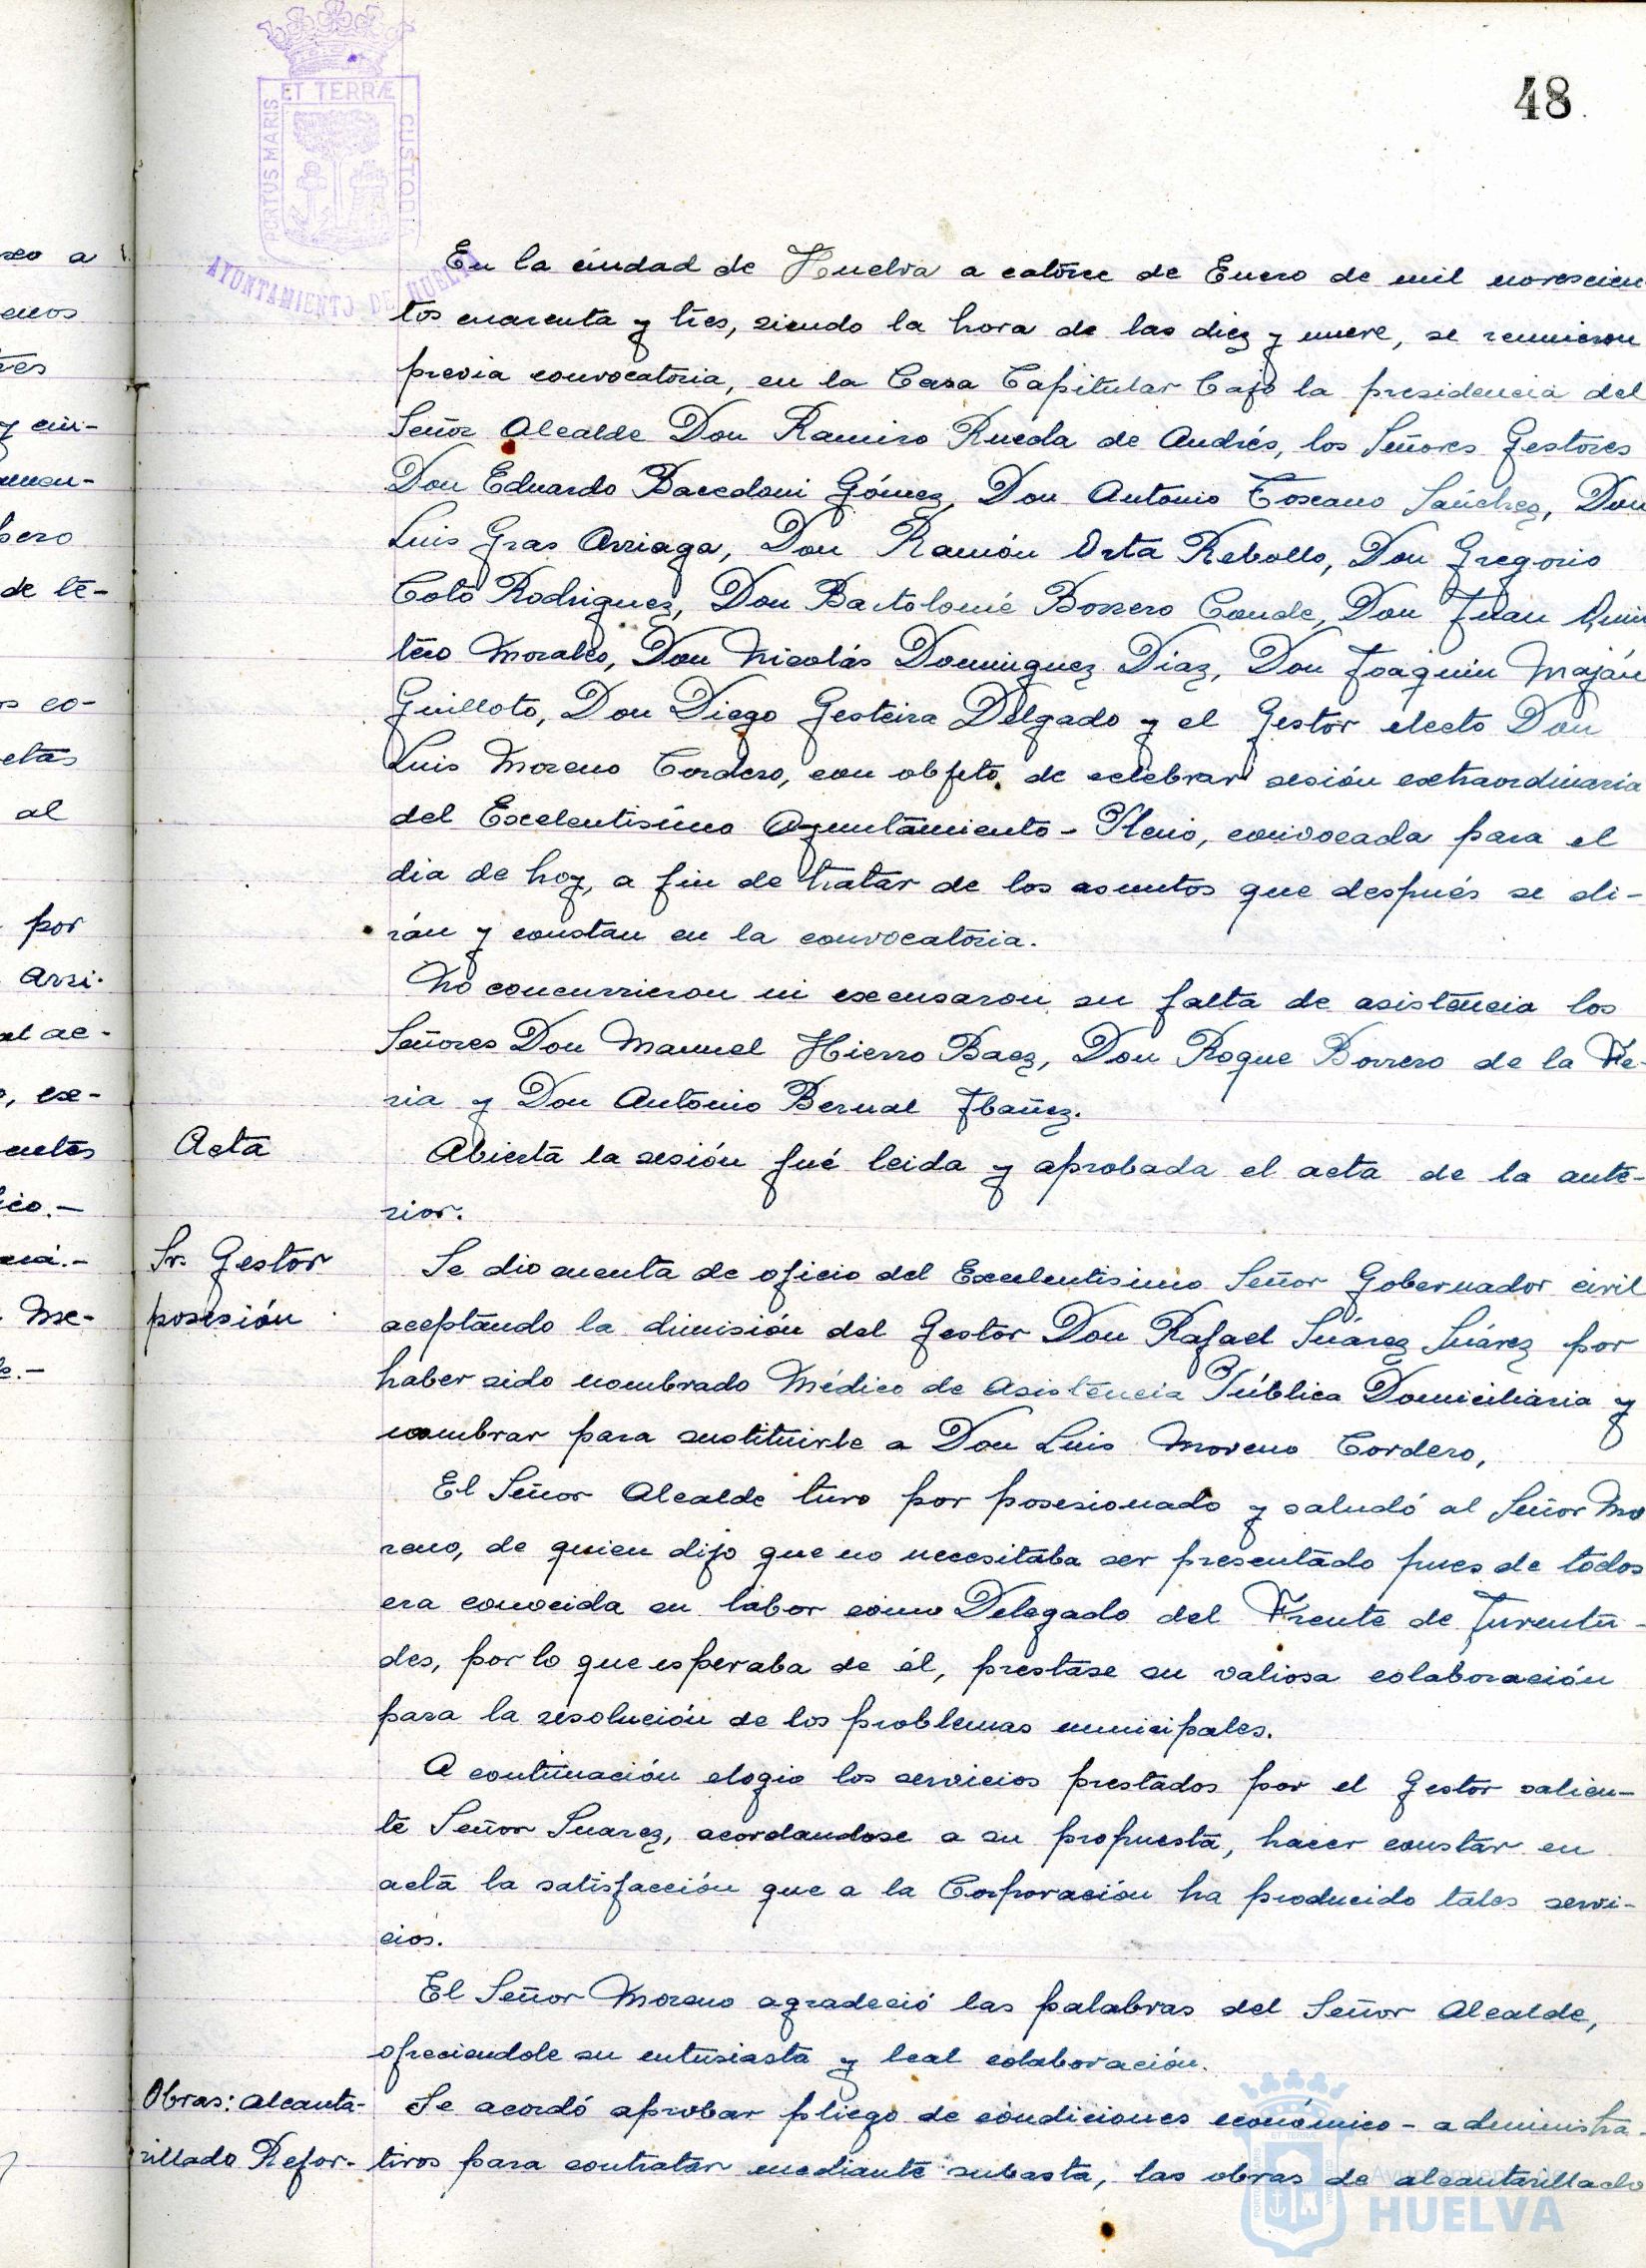 48.
PORTUS MARIS ET TERRÆ CUSTODIA
AYUNTAMIENTO DE HUELVA
En la ciudad de Huelva a catorce de Enero de mil novescien-
tos cuarenta y tres, siendo la hora de las diez y nueve, se reunieron
previa convocatoria, en la Casa Capitular bajo la presidencia del
Señor Alcalde Don Ramiro Rueda de Andrés, los Señores Gestores
Don Eduardo Bacedoni Gómez, Don Antonio Toscano Sánchez, Don
Luis Gras Arriaga, Don Ramón Orta Rebollo, Don Gregorio
Coto Rodriguez, Don Bartolomé Borrero Conde, Don Juan Quin
tero Morales, Don Nicolás Dominguez Diaz, Don Joaquin Maján
Guilloto, Don Diego Gesteira Delgado y el Gestor electo Don
Luis Moreno Cordero, con objeto de celebrar sesión extraordinaria
del Excelentisimo Ayuntamiento - Pleno, convocada para el
dia de hoy, a fin de tratar de los asuntos que después se di-
rán y constan en la convocatoria.
No concurrieron ni excusaron su falta de asistencia los
Señores Don Manuel Hierro Baez, Don Roque Borrero de la Fe-
ria y Don Antonio Bernal Ibañez.
Acta
Abierta la sesión fué leida y aprobada el acta de la ante-
rior.
Sr. Gestor
posesión
Se dio cuenta de oficio del Excelentisimo Señor Gobernador civil
aceptando la dimisión del Gestor Don Rafael Suárez Suárez por
haber sido nombrado Médico de Asistencia Pública Domiciliaria y
nombrar para sustituirle a Don Luis Moreno Cordero,
El Señor Alcalde tuvo por posesionado y saludó al Señor Mo
reno, de quien dijo que no necesitaba ser presentado pues de todos
era conocida su labor como Delegado del Frente de Juventu-
des, por lo que esperaba de él, prestase su valiosa colaboración
para la resolución de los problemas municipales.
A continuación elogio los servicios prestados por el Gestor salien-
te Señor Suarez, acordandose a su propuesta, hacer constar en
acta la satisfacción que a la Corporación ha producido tales servi-
cios.
El Señor Moreno agradeció las palabras del Señor Alcalde,
ofreciendole su entusiasta y leal colaboración.
Obras: Alcanta-
rillado Refor-
Se acordó aprobar pliego de condiciones económico - administra-
tivos para contratar mediante subasta, las obras de alcantarillado
Ayuntamiento de
HUELVA